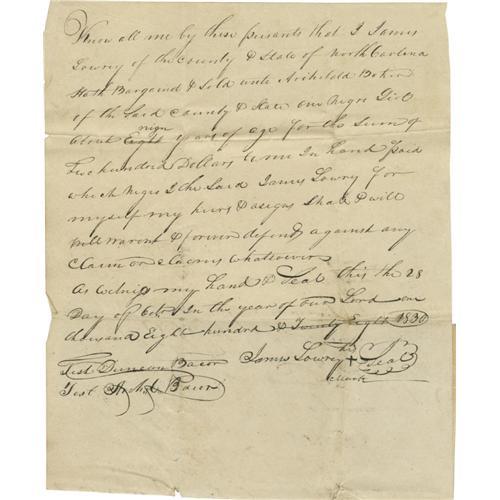 Know all me by these presents that I James
Lowrey of the County & State of North Carolina
Hath Bargaind & Sold unto Archibald
of the Said County & State one Negro
nign
about Eight years of age for the Sum of
hundred Dollars to me In hand paid
which Negro I the Said James Lowry for
myself my heirs & asigns Shal & will
will Warent & forever defend against any
Claim or Claems whatever
As witness my hand & Seal this the 28
Day of In the year of our Lord one
thousand Eight hundred & Twenty Eight 1830
Test Duncan James Lowry his + Seal
Test mark